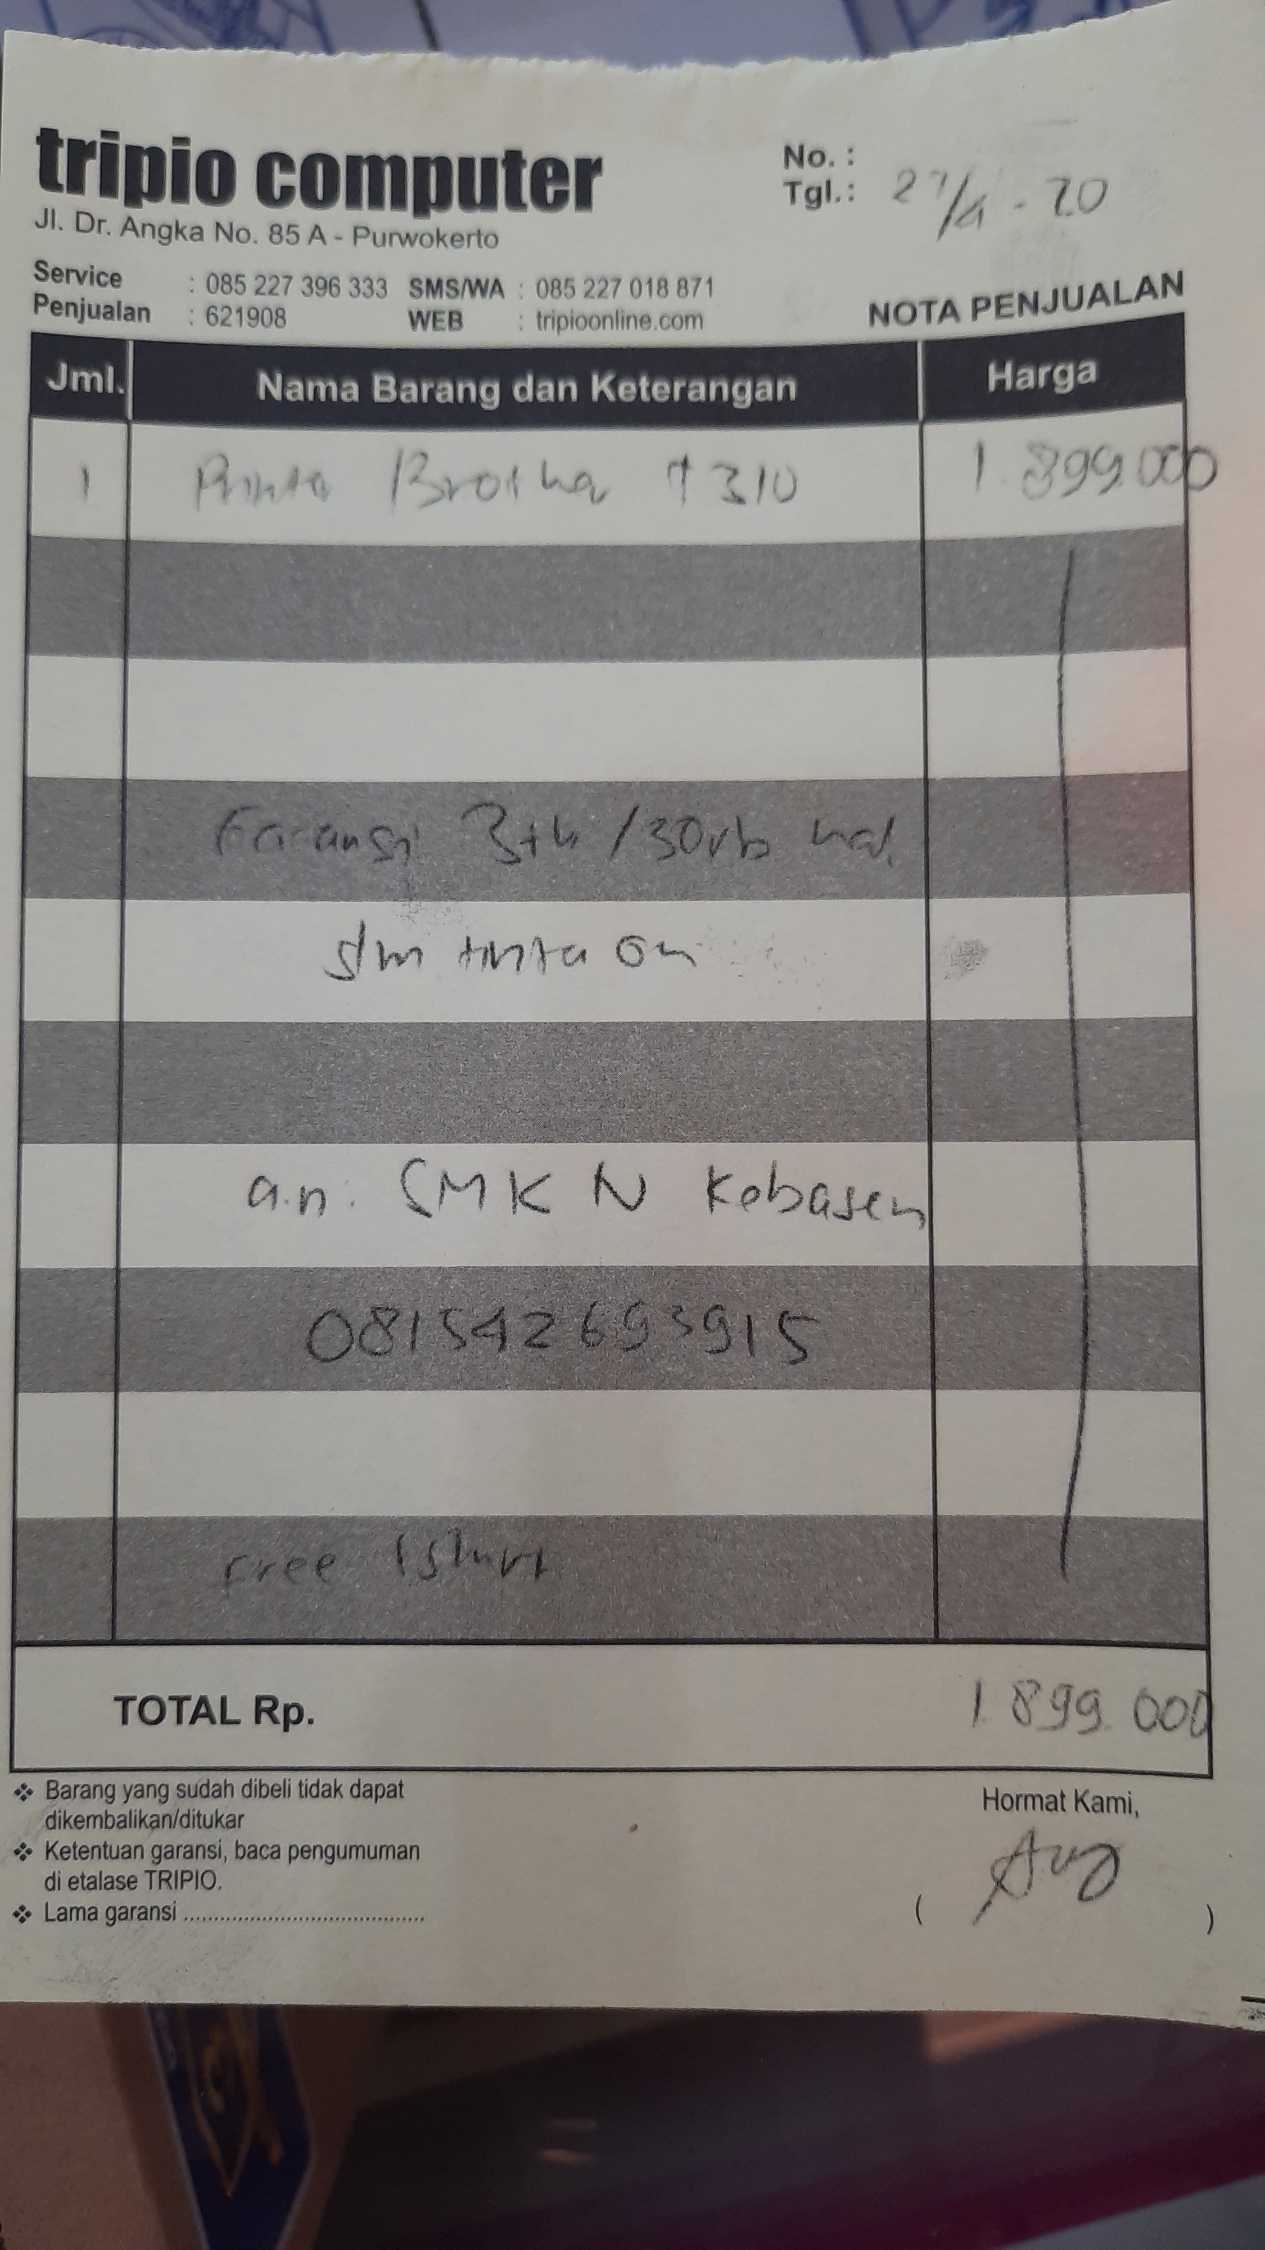 tripio computer
Jl. Dr. Angka No. 85 A - Purwokerto
No. :
Tgl.: 27/4 - 20
Service : 085 227 396 333 SMS/WA : 085 227 018 871
Penjualan : 621908 WEB : tripioonline.com
NOTA PENJUALAN
Jml. Nama Barang dan Keterangan Harga
1 Printer Brother T310 1.899.000
Garansi 3th /30rb hal.
slm tinta ori
a.n. SMK N Kebasen
081542693915
Free tshirt
TOTAL Rp. 1.899.000
❖ Barang yang sudah dibeli tidak dapat
dikembalikan/ditukar
❖ Ketentuan garansi, baca pengumuman
di etalase TRIPIO.
❖ Lama garansi ........................................
Hormat Kami,
( )